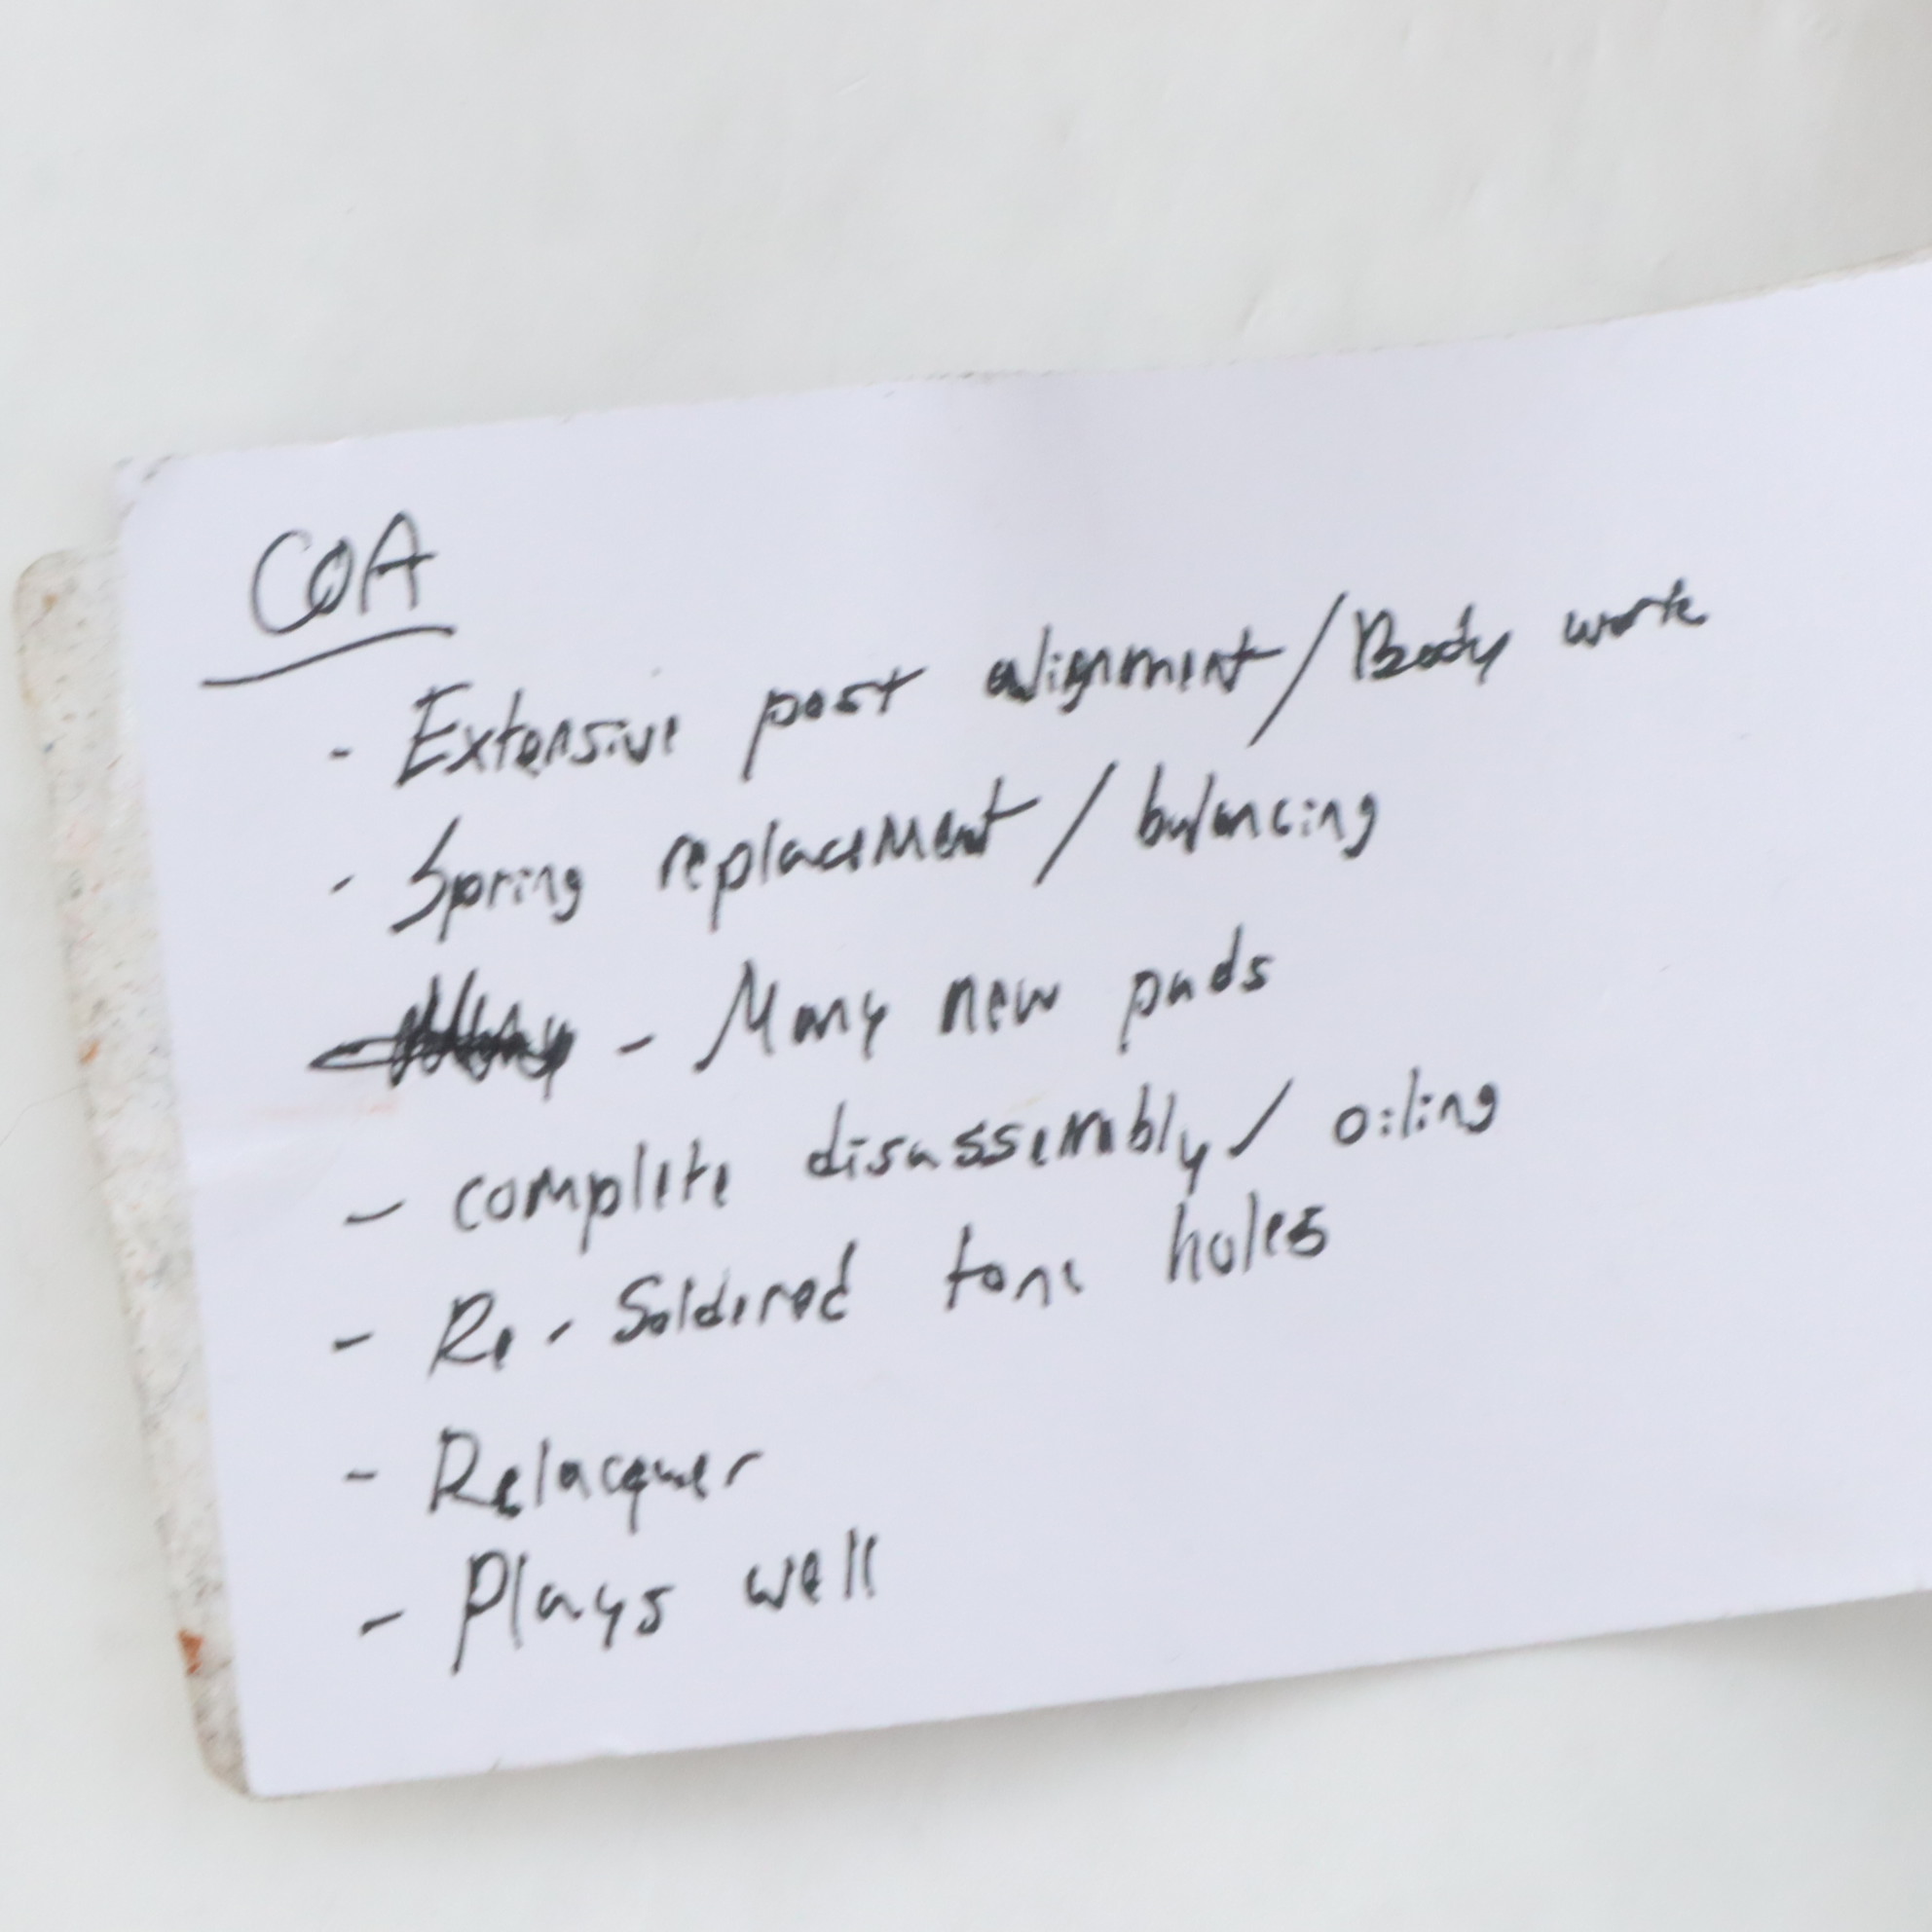 COA
- Extensive post alignment/Body work
- Spring replacement / balancing
- Many new pads
- complete disassembly/ oiling
- Re-Soldered tone holes
- Relacquer
- Plays well